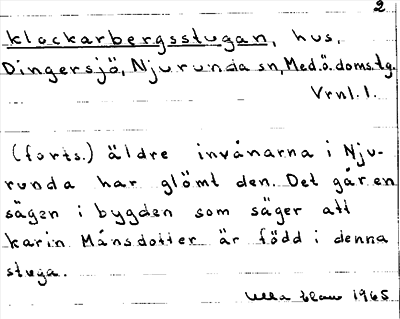 2
Klockarbergsstugan, hus,
Dingersjö, Njurunda sn, Med.ö.doms.tg.
Vrnl. 1.
(forts.) äldre invånarna i Nju-
runda har glömt den. Det går en
sägen i bygden som säger att
Karin Månsdotter är född i denna
stuga.
Ulla 1965